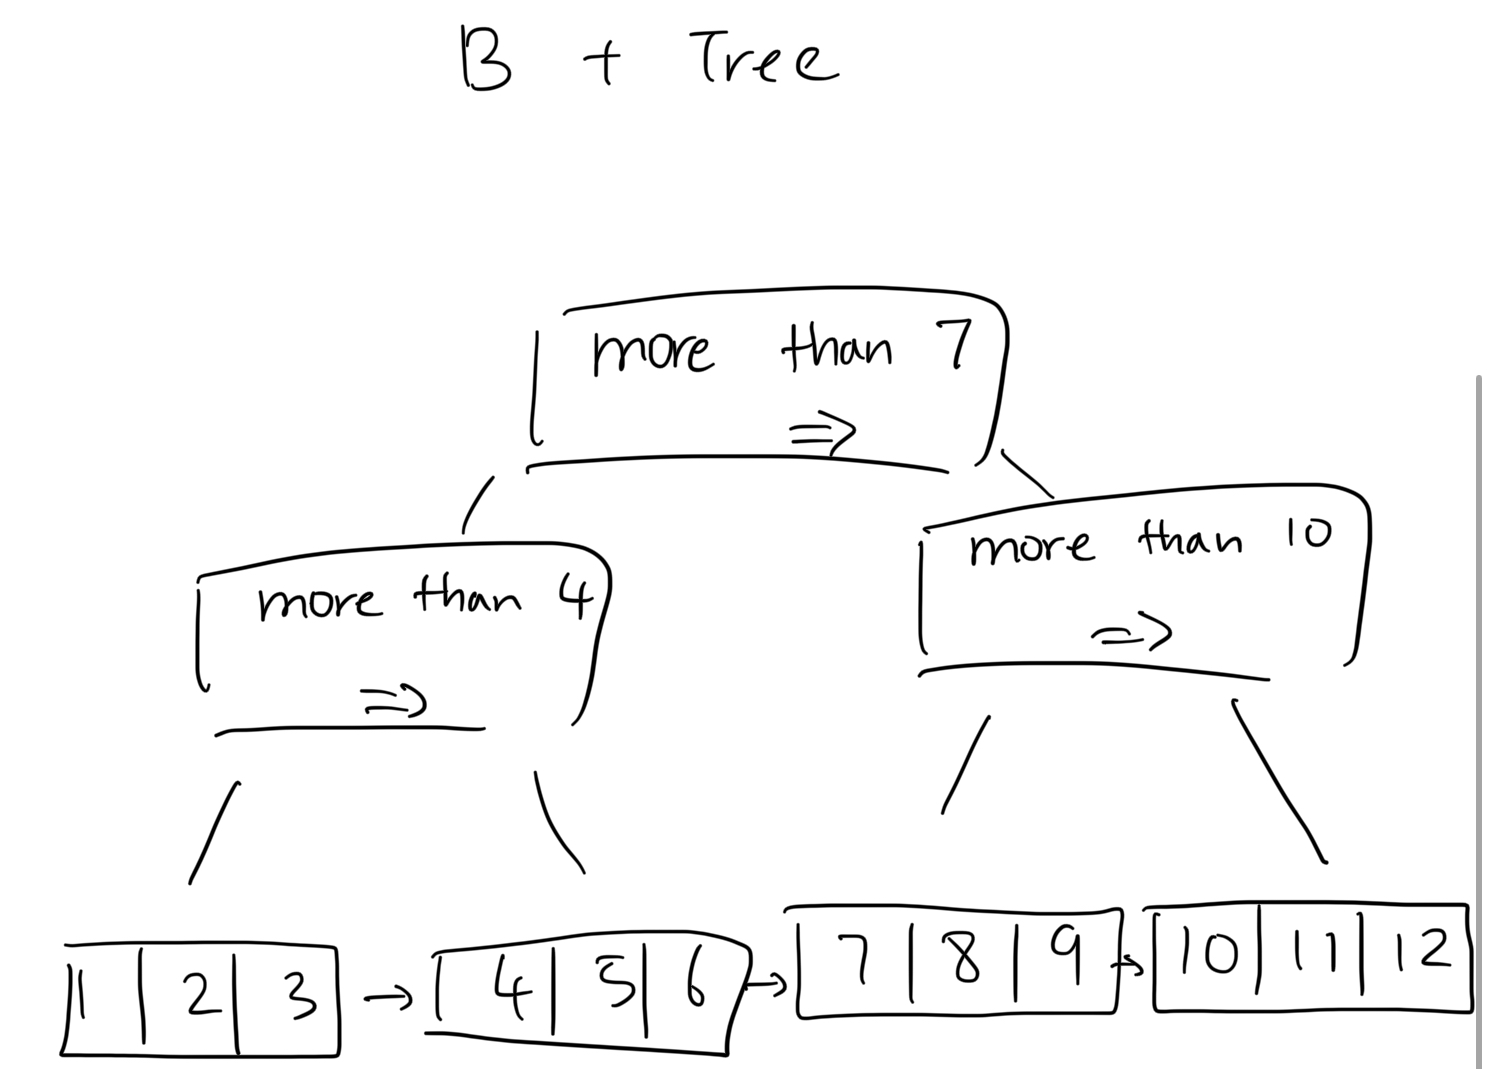 B + Tree
more than 7
⇒
more than 10
⇒
more than 4
⇒
1 | 2 | 3 → 4 | 5 | 6 → 7 | 8 | 9 → 10 | 11 | 12